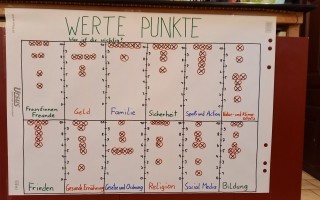 WERTE PUNKTE
Was ist dir wichtig?
Freundinnen
Freunde
Geld
Familie
Sicherheit
Spaß und Action
Natur- und Klima-
Frieden
Gesunde Ernährung
Gesetze und Ordnung
Religion
Social Media
Bildung